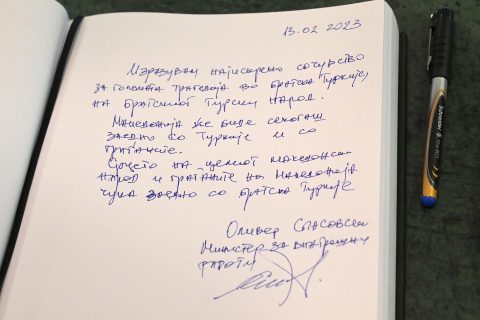 13.02 2023
Изразувам најискрено сочувство
за големата трагедија во братска Туркије,
на братскиот Турски народ.
Македонија ќе биде секогаш
заедно со Туркије и со
граѓаните.
Срцето на целиот македонски
народ и граѓаните на Македонија
чука заедно со братска Туркије
Оливер Спасовски
Министер за внатрешни
работи
Schneider